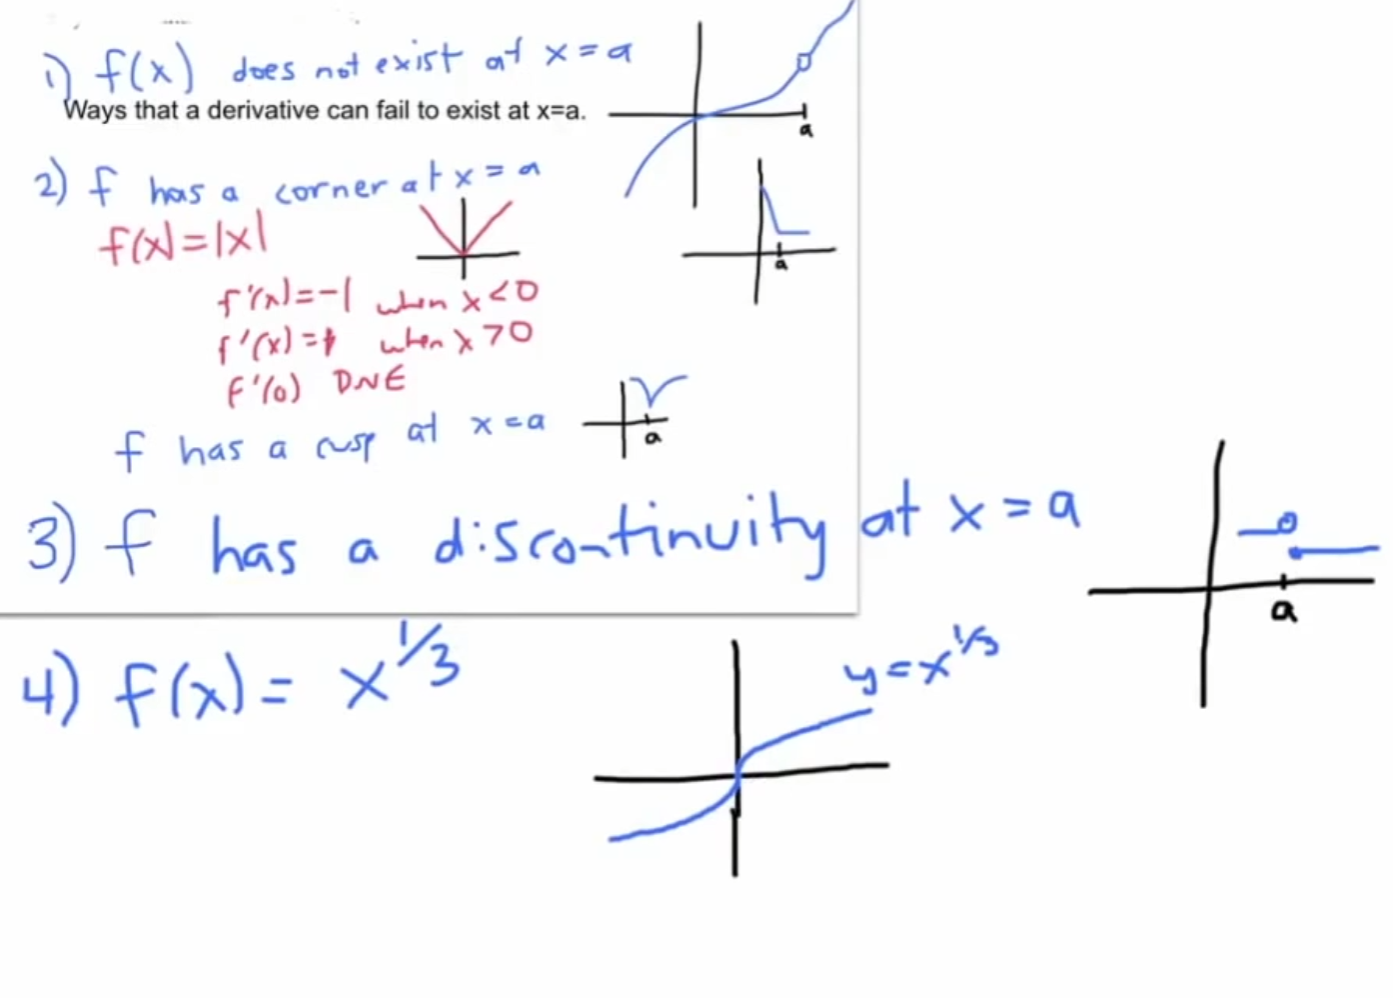 1) f(x) does not exist at x=a
Ways that a derivative can fail to exist at x=a.
a
2) f has a corner at x = a
f(x)=|x|
a
f'(x)=-1 when x<0
f'(x)=1 when x>0
f'(0) DNE
f has a cusp at x=a
a
3) f has a discontinuity at x = a
a
4) f(x) = x^1/3
y=x^1/3